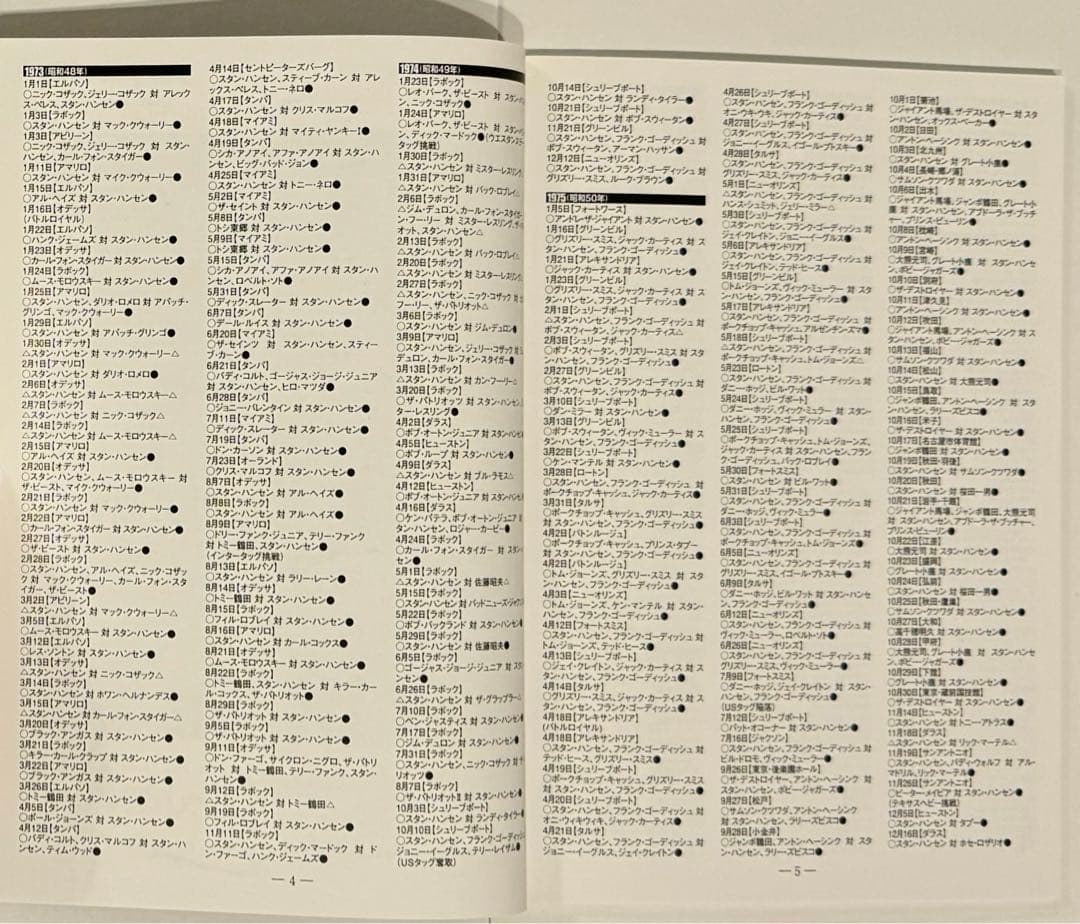 1973(昭和48年)
1月1日【エルパソ】
○ニック・コザック、ジェリー・コザック 対 アレッ
クス・ペレス、スタン・ハンセン●
1月3日【ラボック】
○スタン・ハンセン 対 マック・クウォーリー●
1月3日【アビリーン】
○ニック・コザック、ジェリー・コザック 対 スタン・
ハンセン、カール・フォン・スタイガー●
1月11日【アマリロ】
○スタン・ハンセン 対 マイク・クウォーリー●
1月15日【エルパソ】
○アル・ヘイズ 対 スタン・ハンセン●
1月16日【オデッサ】
(バトルロイヤル)
1月22日【エルパソ】
○ハンク・ジェームズ 対 スタン・ハンセン●
1月23日【オデッサ】
○カール・フォン・スタイガー 対 スタン・ハンセン●
1月24日【ラボック】
○ムース・モロウスキー 対 スタン・ハンセン●
1月25日【アマリロ】
○スタン・ハンセン、ダリオ・ロメロ 対 アパッチ・
グリンゴ、マック・クウォーリー●
1月29日【エルパソ】
○スタン・ハンセン 対 アパッチ・グリンゴ●
1月30日【オデッサ】
△スタン・ハンセン 対 マック・クウォーリー△
2月1日【アマリロ】
○スタン・ハンセン 対 ダリオ・ロメロ●
2月6日【オデッサ】
△スタン・ハンセン 対 ムース・モロウスキー△
2月7日【ラボック】
△スタン・ハンセン 対 ニック・コザック△
2月14日【ラボック】
△スタン・ハンセン 対 ムース・モロウスキー△
2月15日【アマリロ】
○アル・ヘイズ 対 スタン・ハンセン●
2月20日【オデッサ】
○スタン・ハンセン、ムース・モロウスキー 対
ザ・ビースト、マイク・クウォーリー●
2月21日【ラボック】
○スタン・ハンセン 対 マック・クウォーリー●
2月22日【アマリロ】
○カール・フォン・スタイガー 対 スタン・ハンセン●
2月27日【オデッサ】
○ザ・ビースト 対 スタン・ハンセン●
2月28日【ラボック】
○スタン・ハンセン、アル・ヘイズ、ニック・コザッ
ク 対 マック・クウォーリー、カール・フォン・スタ
イガー、ザ・ビースト●
3月2日【アビリン】
△スタン・ハンセン 対 マック・クウォーリー△
3月5日【エルパソ】
○ムース・モロウスキー 対 スタン・ハンセン●
3月12日【エルパソ】
○レス・ソントン 対 スタン・ハンセン●
3月13日【オデッサ】
△スタン・ハンセン 対 ニック・コザック△
3月14日【ラボック】
○スタン・ハンセン 対 ホワン・ヘルナンデス●
3月15日【アマリロ】
△スタン・ハンセン 対 カール・フォン・スタイガー△
3月20日【オデッサ】
○ブラック・アンガス 対 スタン・ハンセン●
3月21日【ラボック】
○キラー・カール・クラップ 対 スタン・ハンセン●
3月22日【アマリロ】
○ブラック・アンガス 対 スタン・ハンセン●
3月26日【エルパソ】
○トミー鶴田 対 スタン・ハンセン●
4月5日【タンパ】
○ポール・ジョーンズ 対 スタン・ハンセン●
4月12日【タンパ】
○バディ・コルト、クリス・マルコフ 対 スタン・ハ
ンセン、ティム・ウッド●
4月14日【セントピータースバーグ】
○スタン・ハンセン、スティーブ・カーン 対 アレ
ックス・ペレス、トニー・ネロ●
4月17日【タンパ】
○スタン・ハンセン 対 クリス・マルコフ●
4月18日【マイアミ】
○スタン・ハンセン 対 マイティ・ヤンキーI●
4月19日【タンパ】
○シカ・アノアイ、アファ・アノアイ 対 スタン・ハ
ンセン、ビッグ・バッド・ジョン●
4月25日【マイアミ】
○スタン・ハンセン 対 トニー・ネロ●
5月2日【マイアミ】
○ザ・セイント 対 スタン・ハンセン●
5月8日【タンパ】
○トシ東郷 対 スタン・ハンセン●
5月9日【マイアミ】
○トシ東郷 対 スタン・ハンセン●
5月15日【タンパ】
○シカ・アノアイ、アファ・アノアイ 対 スタン・ハ
ンセン、ロベルト・ソト●
5月31日【タンパ】
○ディック・スレーター 対 スタン・ハンセン●
6月7日【タンパ】
○デール・ルイス 対 スタン・ハンセン●
6月20日【マイアミ】
○ザ・セインツ 対 スタン・ハンセン、スティー
ブ・カーン●
6月21日【タンパ】
○バディ・コルト、ゴージャス・ジョージ・ジュニア
対 スタン・ハンセン、ヒロ・マツダ●
6月28日【タンパ】
○ジョニー・バレンタイン 対 スタン・ハンセン●
7月11日【マイアミ】
○ディック・スレーター 対 スタン・ハンセン●
7月19日【タンパ】
○ドン・カーソン 対 スタン・ハンセン●
7月23日【オーランド】
○クリス・マルコフ 対 スタン・ハンセン●
8月7日【オデッサ】
○スタン・ハンセン 対 アル・ヘイズ●
8月8日【ラボック】
○スタン・ハンセン 対 アル・ヘイズ●
8月9日【アマリロ】
○ドリー・ファンク・ジュニア、テリー・ファンク
対 トミー鶴田、スタン・ハンセン●
(インタータッグ挑戦)
8月13日【エルパソ】
○スタン・ハンセン 対 ラリー・レーン●
8月14日【オデッサ】
○トミー鶴田 対 スタン・ハンセン●
8月15日【ラボック】
○フィル・ロブレイ 対 スタン・ハンセン●
8月16日【アマリロ】
○スタン・ハンセン 対 カール・コックス●
8月21日【オデッサ】
○ムース・モロウスキー 対 スタン・ハンセン●
8月22日【ラボック】
○トミー鶴田、スタン・ハンセン 対 キラー・カー
ル・コックス、ザ・パトリオット●
8月29日【ラボック】
○ザ・パトリオット 対 スタン・ハンセン●
9月5日【ラボック】
○ザ・パトリオット 対 スタン・ハンセン●
9月11日【オデッサ】
○ドン・ファーゴ、サイクロン・ニグロ、ザ・パトリ
オット 対 トミー鶴田、テリー・ファンク、スタン・
ハンセン●
9月12日【ラボック】
△スタン・ハンセン 対 トミー鶴田△
9月19日【ラボック】
○フィル・ロブレイ 対 スタン・ハンセン●
11月11日【ラボック】
○スタン・ハンセン、ディック・マードック 対 ド
ン・ファーゴ、ハンク・ジェームズ●
1974(昭和49年)
1月23日【ラボック】
○レオ・バーク、ザ・ビースト 対 スタン・ハンセ
ン、ニック・コザック●
1月24日【アマリロ】
○レオ・バーク、ザ・ビースト 対 スタン・ハンセ
ン、ディック・マードック●(ウエスタンステー
タッグ挑戦)
1月30日【ラボック】
△スタン・ハンセン 対 ミスター・レスリング
1月31日【アマリロ】
△スタン・ハンセン 対 バック・ロブレイ△
2月6日【ラボック】
△ジム・デュロン、カール・フォン・スタイガー
ン・フーリー 対 ミスター・レスリング、ザ・パ
オット、スタン・ハンセン△
2月13日【ラボック】
△スタン・ハンセン 対 バック・ロブレイ△
2月20日【ラボック】
△スタン・ハンセン 対 ミスター・レスリング
2月27日【ラボック】
△スタン・ハンセン、ニック・コザック 対 カ
フーリー、ザ・パトリオット△
3月6日【ラボック】
○スタン・ハンセン 対 ジム・デュロン●
3月9日【アマリロ】
○スタン・ハンセン、ジェリー・コザック 対
デュロン、カール・フォン・スタイガー●
3月13日【ラボック】
△スタン・ハンセン 対 カン・フーリー△
3月20日【ラボック】
○ザ・パトリオッツ 対 スタン・ハンセン、ミ
ター・レスリング●
4月2日【ダラス】
○ボブ・オートン・ジュニア 対 スタン・ハンセン
4月5日【ヒューストン】
○ボブ・ループ 対 スタン・ハンセン●
4月9日【ダラス】
△スタン・ハンセン 対 ブル・ラモス△
4月12日【ヒューストン】
○ボブ・オートン・ジュニア 対 スタン・ハンセン
4月16日【ダラス】
○ケン・パテラ、ボブ・オートン・ジュニア
タン・ハンセン、ロジャー・カービー●
4月24日【ラボック】
○カール・フォン・スタイガー 対 スタン・ハン
セン●
5月1日【ラボック】
△スタン・ハンセン 対 佐藤昭夫△
5月15日【ラボック】
○スタン・ハンセン 対 バッドニュース・
5月22日【ラボック】
○ボブ・バックランド 対 スタン・ハンセン●
5月29日【ラボック】
○スタン・ハンセン 対 佐藤昭夫●
6月5日【ラボック】
○ゴージャス・ジョージ・ジュニア 対 スタン・
ンセン●
6月26日【ラボック】
△スタン・ハンセン 対 ザ・グラップラー△
7月10日【ラボック】
○ベン・ジャスティス 対 スタン・ハンセン●
7月17日【ラボック】
○ジム・デュロン 対 スタン・ハンセン●
7月31日【ラボック】
○スタン・ハンセン、ニック・コザック 対 ザ
リオッツ●
8月7日【ラボック】
○ザ・パトリオットII 対 スタン・ハンセン●
10月3日【シュリーブポート】
○スタン・ハンセン 対 ランディ・タイラー●
10月10日【シュリーブポート】
○スタン・ハンセン、フランク・ゴーディッシュ
ジョニー・イーグルス、テリー・レイザム●
(USタッグ奪取)
— 4 —
10月14日【シュリーブポート】
○スタン・ハンセン 対 ランディ・タイラー●
10月21日【シュリーブポート】
○スタン・ハンセン 対 ボブ・スウィータン●
11月21日【グリーンビル】
○スタン・ハンセン、フランク・ゴーディッシュ 対
ボブ・スウィータン、アーマン・ハッサン●
12月12日【ニューオリンズ】
○スタン・ハンセン、フランク・ゴーディッシュ 対
グリズリー・スミス、ルーク・ブラウン●
1975(昭和50年)
1月5日【フォートワース】
○アンドレ・ザ・ジャイアント 対 スタン・ハンセン●
1月16日【グリーンビル】
○グリズリー・スミス、ジャック・カーティス 対 ス
タン・ハンセン、フランク・ゴーディッシュ●
1月21日【アレキサンドリア】
○ジャック・カーティス 対 スタン・ハンセン●
1月23日【グリーンビル】
○グリズリー・スミス、ジャック・カーティス 対
スタン・ハンセン、フランク・ゴーディッシュ●
2月1日【シュリーブポート】
△スタン・ハンセン、フランク・ゴーディッシュ 対
ボブ・スウィータン、ジャック・カーティス△
2月3日【シュリーブポート】
○ボブ・スウィータン、グリズリー・スミス 対 スタ
ン・ハンセン、フランク・ゴーディッシュ●
2月27日【グリーンビル】
○スタン・ハンセン、フランク・ゴーディッシュ 対
ボブ・スウィータン、ジャック・カーティス●
3月10日【シュリーブポート】
○ダン・ミラー 対 スタン・ハンセン●
3月13日【グリーンビル】
○ボブ・スウィータン、ヴィック・ミューラー 対 ス
タン・ハンセン、フランク・ゴーディッシュ●
3月22日【シュリーブポート】
○ケン・マンテル 対 スタン・ハンセン●
3月28日【ロートン】
○スタン・ハンセン、フランク・ゴーディッシュ 対
ポークチョップ・キャッシュ、ジャック・カーティス●
3月31日【タルサ】
○ポークチョップ・キャッシュ、グリズリー・スミス
対 スタン・ハンセン、フランク・ゴーディッシュ●
4月2日【バトンルージュ】
○ポークチョップ・キャッシュ、プリンス・タプー
対 スタン・ハンセン、フランク・ゴーディッシュ●
4月2日【バトンルージュ】
○トム・ジョーンズ、グリズリー・スミス 対 スタ
ン・ハンセン、フランク・ゴーディッシュ●
4月3日【ニューオリンズ】
○トム・ジョーンズ、ケン・マンテル 対 スタン・
ハンセン、フランク・ゴーディッシュ●
4月12日【フォートスミス】
○スタン・ハンセン、フランク・ゴーディッシュ 対
トム・ジョーンズ、テッド・ヒース●
4月13日【シュリーブポート】
○ジェイ・クレイトン、ジャック・カーティス 対 ス
タン・ハンセン、フランク・ゴーディッシュ●
4月14日【タルサ】
○グリズリー・スミス、ジャック・カーティス 対 ス
タン・ハンセン、フランク・ゴーディッシュ●
4月18日【アレキサンドリア】
(バトルロイヤル)
4月18日【アレキサンドリア】
○スタン・ハンセン、フランク・ゴーディッシュ 対
テッド・ヒース、グリズリー・スミス●
4月19日【シュリーブポート】
○ポークチョップ・キャッシュ、グリズリー・スミス
対 スタン・ハンセン、フランク・ゴーディッシュ●
4月20日【シュリーブポート】
○スタン・ハンセン、フランク・ゴーディッシュ 対
オニ・ウィキウィキ、ジャック・カーティス●
4月21日【タルサ】
○スタン・ハンセン、フランク・ゴーディッシュ 対
ジョニー・イーグルス、ジェイ・クレイトン●
4月26日【シュリーブポート】
○スタン・ハンセン、フランク・ゴーディッシュ 対
オニ・ウキ・ウキ、ジャック・カーティス●
4月27日【シュリーブポート】
○スタン・ハンセン、フランク・ゴーディッシュ 対
ジョニー・イーグルス、イゴール・ブトスキー●
4月28日【タルサ】
○スタン・ハンセン、フランク・ゴーディッシュ 対
5月1日【ニューオリンズ】
△スタン・ハンセン、フランク・ゴーディッシュ 対
ハンス・シュミット、ジェリー・ミラー△
5月3日【シュリーブポート】
○スタン・ハンセン、フランク・ゴーディッシュ 対
ジェイ・クレイトン、ジョニー・イーグルス●
5月6日【アレキサンドリア】
○スタン・ハンセン、フランク・ゴーディッシュ 対
ジェイ・クレイトン、テッド・ヒース●
5月15日【グリーンビル】
○トム・ジョーンズ、ヴィック・ミューラー 対 スタ
ン・ハンセン、フランク・ゴーディッシュ●
5月17日【アレキサンドリア】
○スタン・ハンセン、フランク・ゴーディッシュ 対
ポークチョップ・キャッシュ、アルゼンチンズマ●
5月18日【シュリーブポート】
△スタン・ハンセン、フランク・ゴーディッシュ 対
ポークチョップ・キャッシュ、トム・ジョーンズ△
5月23日【ロートン】
○スタン・ハンセン、フランク・ゴーディッシュ 対
ダニー・ホッジ、ビル・ワット●
5月24日【シュリーブポート】
○ダニー・ホッジ、ヴィック・ミューラー 対 スタン・
ハンセン、フランク・ゴーディッシュ●
5月25日【シュリーブポート】
○ポークチョップ・キャッシュ、トム・ジョーンズ、
ジャック・カーティス 対 スタン・ハンセン、フラン
ク・ゴーディッシュ、バック・ロブレイ●
5月30日【フォートスミス】
○スタン・ハンセン 対 ビル・ワット●
5月31日【シュリーブポート】
○スタン・ハンセン、フランク・ゴーディッシュ 対
ダニー・ホッジ、ヴィック・ミューラー●
6月3日【シュリーブポート】
○スタン・ハンセン、フランク・ゴーディッシュ 対
ポークチョップ・キャッシュ、トム・ジョーンズ●
6月5日【ニューオリンズ】
○スタン・ハンセン、フランク・ゴーディッシュ 対
グリズリー・スミス、イゴール・ブトスキー●
6月9日【タルサ】
○ダニー・ホッジ、ビル・ワット 対 スタン・ハンセ
ン、フランク・ゴーディッシュ●
6月12日【ニューオリンズ】
○スタン・ハンセン、フランク・ゴーディッシュ 対
ヴィック・ミューラー、ロベルト・ソト●
6月26日【ニューオリンズ】
○スタン・ハンセン、フランク・ゴーディッシュ 対
グリズリー・スミス、ヴィック・ミューラー●
7月9日【フォートスミス】
○ダニー・ホッジ、ジェイ・クレイトン 対 スタン・
ハンセン、フランク・ゴーディッシュ●
(USタッグ陥落)
7月12日【シュリーブポート】
○パット・オコーナー 対 スタン・ハンセン●
7月16日【ジャクソン】
○スタン・ハンセン、フランク・ゴーディッシュ 対
ビル・ドロモ、ヴィック・ミューラー●
9月26日【東京・後楽園ホール】
○ザ・デストロイヤー、アントン・ヘーシンク 対
スタン・ハンセン、オックス・ベーカー●
9月27日【松戸】
○サムソン・クツワダ、アントン・ヘーシンク
対 スタン・ハンセン、ラリー・ズビスコ●
9月28日【小金井】
○ジャンボ鶴田、アントン・ヘーシンク 対 スタ
ン・ハンセン、ラリー・ズビスコ●
10月1日【菊池】
○ジャイアント馬場、ザ・デストロイヤー 対 スタ
ン・ハンセン、オックス・ベーカー●
10月2日【日田】
○アントン・ヘーシンク 対 スタン・ハンセン●
10月3日【北九州】
○スタン・ハンセン 対 グレート小鹿●
10月4日【長崎・郷ノ浦】
○サムソン・クツワダ 対 スタン・ハンセン●
10月6日【出水】
○ジャイアント馬場、ジャンボ鶴田、グレート小
鹿 対 スタン・ハンセン、アブドーラ・ザ・ブッチ
ャー、プリンス・ビューリン●
10月8日【枕崎】
○アントン・ヘーシンク 対 スタン・ハンセン●
10月9日【宮崎】
○大熊元司、グレート小鹿 対 スタン・ハンセ
ン、ボビー・ジャガーズ●
10月10日【別府】
○ザ・デストロイヤー 対 スタン・ハンセン●
10月11日【津久見】
○ジャンボ鶴田 対 スタン・ハンセン●
10月12日【吹田】
○ジャイアント馬場、アントン・ヘーシンク 対 スタ
ン・ハンセン、ボビー・ジャガーズ●
10月13日【福山】
○サムソン・クツワダ 対 スタン・ハンセン●
10月14日【松山】
○スタン・ハンセン 対 大熊元司●
10月15日【鳥取】
○ジャンボ鶴田、アントン・ヘーシンク 対 スタ
ン・ハンセン、ラリー・ズビスコ●
10月16日【米子】
○アントン・ヘーシンク 対 スタン・ハンセン●
10月17日【名古屋市体育館】
○ジャンボ鶴田 対 スタン・ハンセン●
10月19日【秋田・羽後】
○スタン・ハンセン 対 サムソン・クツワダ●
10月20日【秋田】
○スタン・ハンセン 対 桜田一男●
10月21日【岩手・千厩】
○ジャイアント馬場、ジャンボ鶴田、ザ・デストロイヤー
対 スタン・ハンセン、アブドーラ・ザ・ブッチャー、
プリンス・ビューリン●
10月22日【江差】
○大熊元司 対 スタン・ハンセン●
10月23日【盛岡】
○グレート小鹿 対 スタン・ハンセン●
10月24日【弘前】
○スタン・ハンセン 対 桜田一男●
10月25日【秋田・鷹巣】
○サムソン・クツワダ 対 スタン・ハンセン●
10月27日【大和】
○高千穂明久 対 スタン・ハンセン●
10月28日【甲府】
○大熊元司、グレート小鹿 対 スタン・ハンセ
ン、ボビー・ジャガーズ●
10月29日【下館】
○グレート小鹿 対 スタン・ハンセン●
10月30日【東京・蔵前国技館】
○ザ・デストロイヤー 対 スタン・ハンセン●
11月14日【ヒューストン】
○スタン・ハンセン 対 トニー・アトラス●
11月18日【ダラス】
△スタン・ハンセン 対 リック・マーテル△
11月19日【サンアントニオ】
○スタン・ハンセン、バディ・ウォルフ 対 アル・
マドリル、リック・マーテル●
11月26日【サンアントニオ】
○ピーター・メイビア 対 スタン・ハンセン●
(テキサスヘビー挑戦)
12月5日【ヒューストン】
○スタン・ハンセン 対 タプー●
12月16日【ダラス】
○スタン・ハンセン 対 ホセ・ロザリオ●
— 5 —